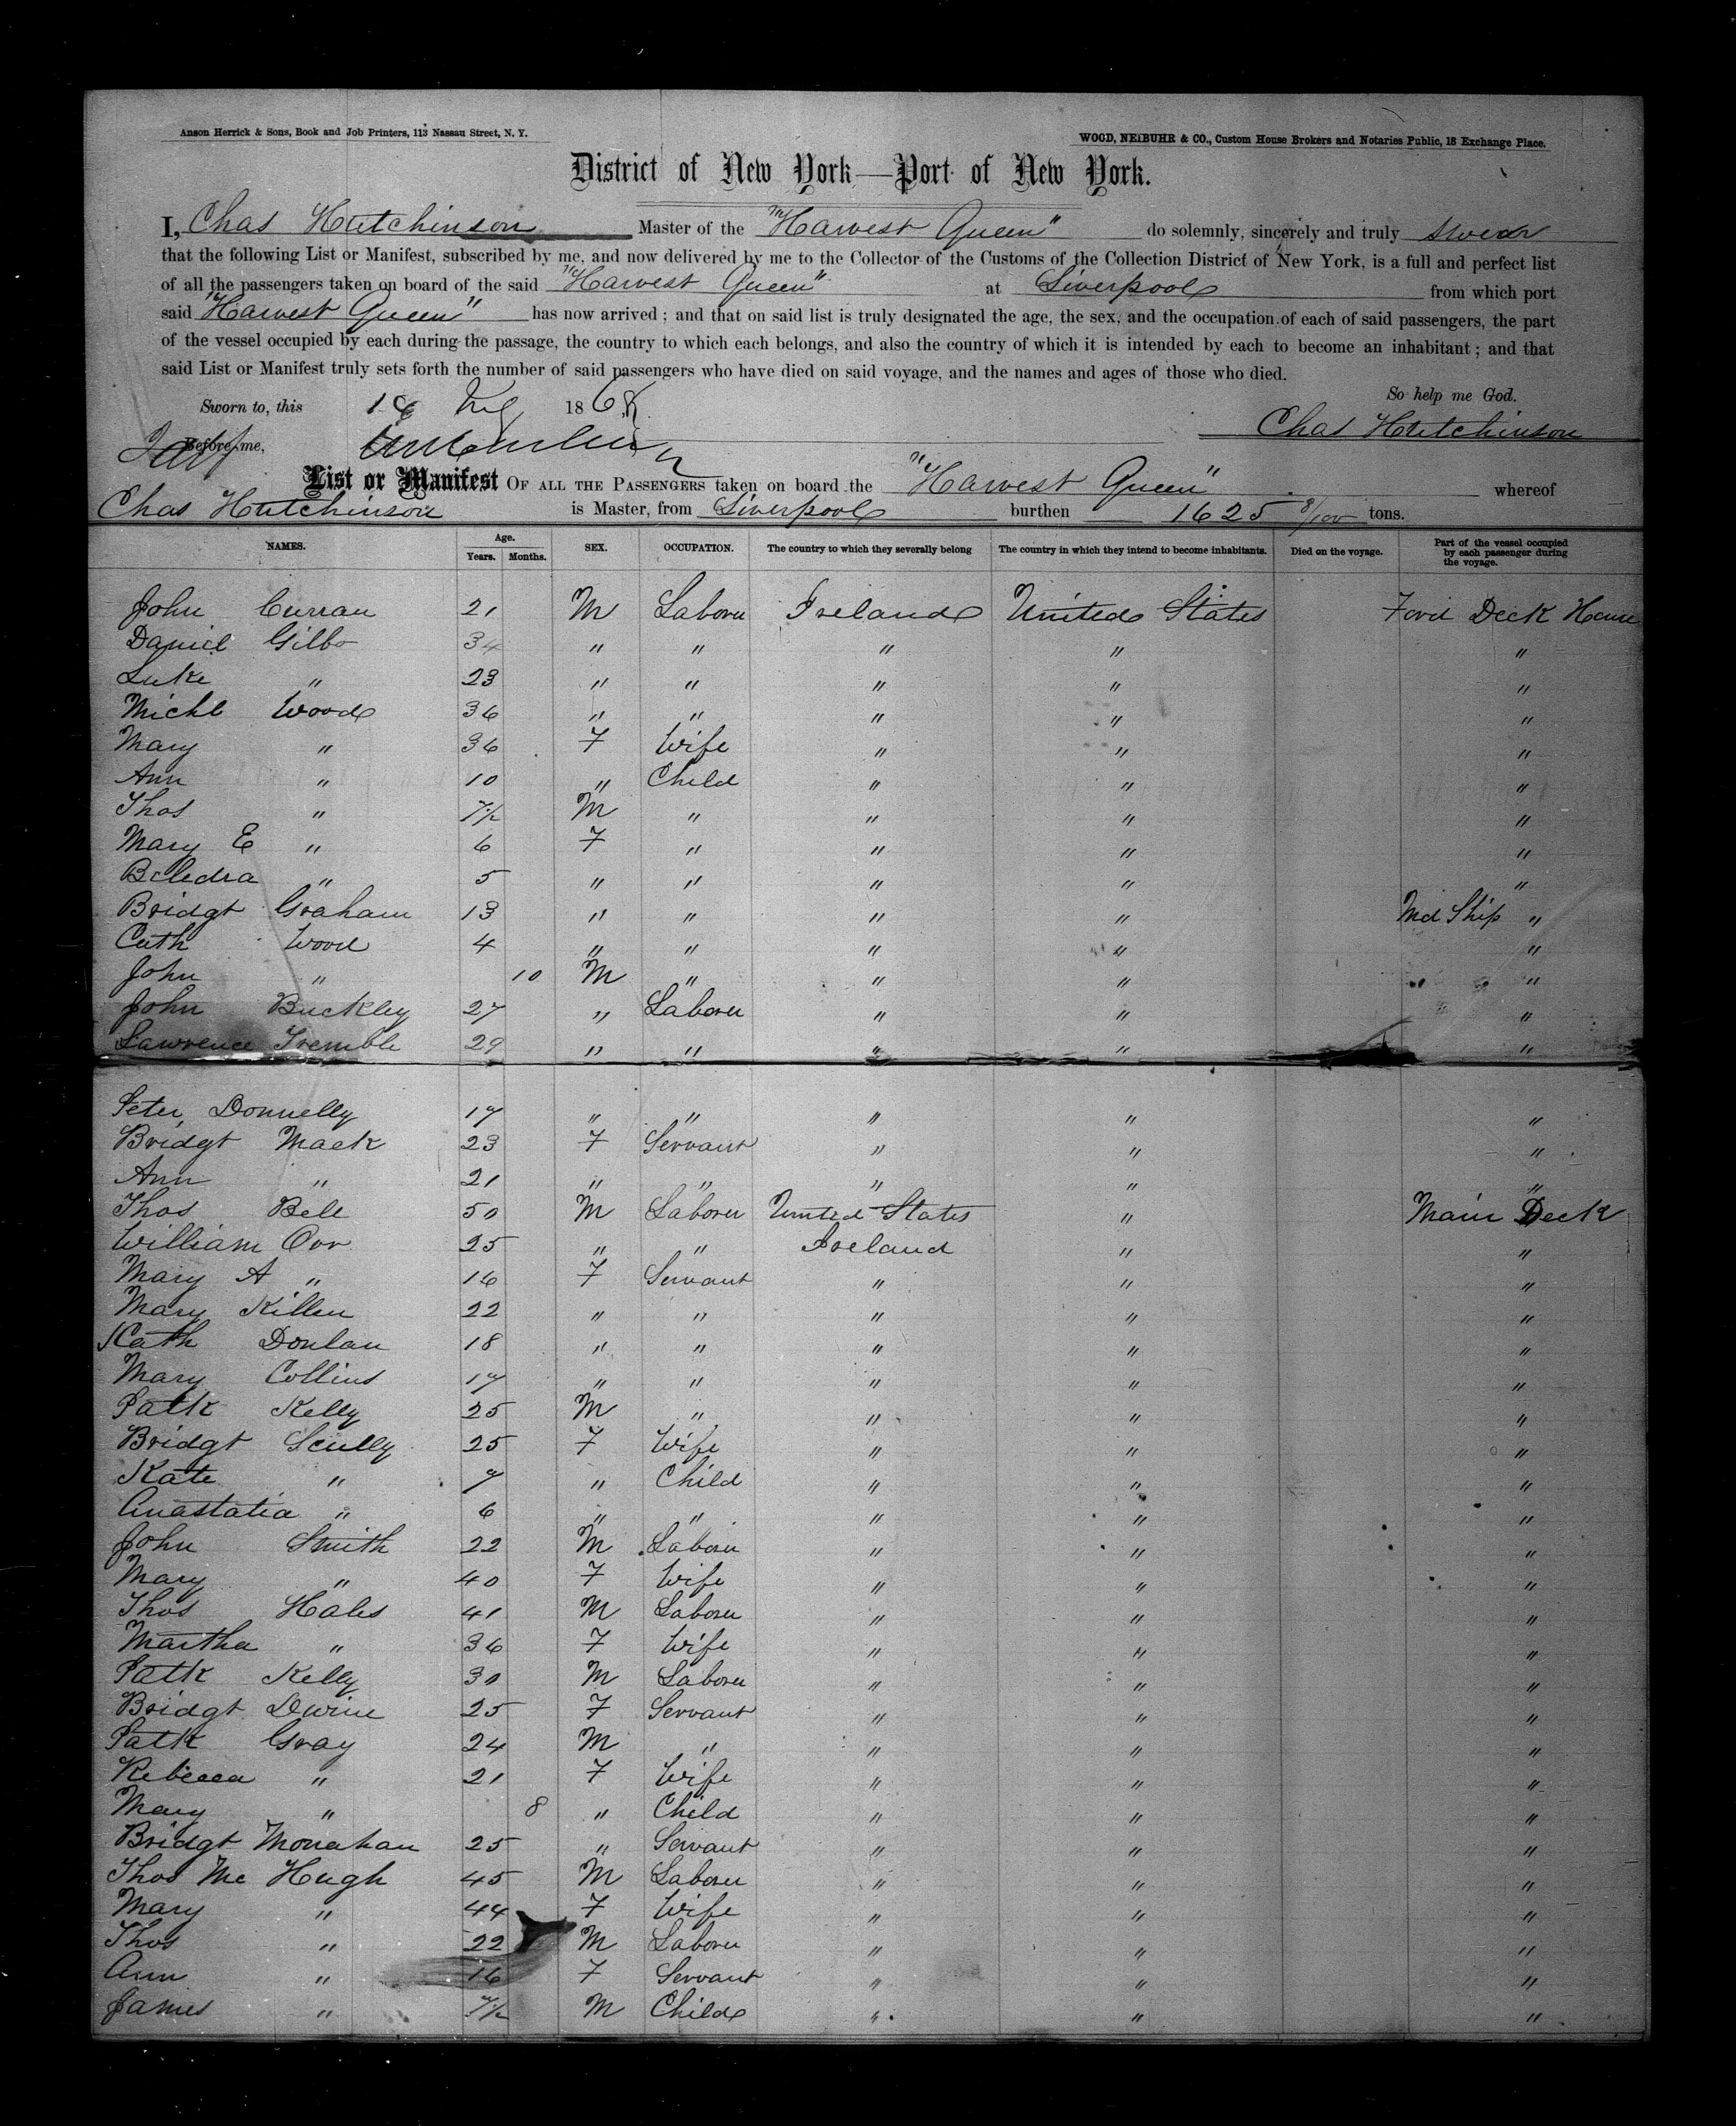 Anson Herrick & Sons, Book and Job Printers, 113 Nassau Street, N. Y.
WOOD, NEIBUHR & CO., Custom House Brokers and Notaries Public, 18 Exchange Place.
District of New York—Port of New York.
I, Chas Hutchinson Master of the "Harvest Queen" do solemnly, sincerely and truly swear
that the following List or Manifest, subscribed by me, and now delivered by me to the Collector of the Customs of the Collection District of New York, is a full and perfect list
of all the passengers taken on board of the said "Harvest Queen" at Liverpool from which port
said "Harvest Queen" has now arrived ; and that on said list is truly designated the age, the sex, and the occupation of each of said passengers, the part
of the vessel occupied by each during the passage, the country to which each belongs, and also the country of which it is intended by each to become an inhabitant ; and that
said List or Manifest truly sets forth the number of said passengers who have died on said voyage, and the names and ages of those who died.
So help me God.
Sworn to, this 1868
Chas Hutchinson
Before me,
List or Manifest OF ALL THE PASSENGERS taken on board the "Harvest Queen" whereof
Chas Hutchinson is Master, from Liverpool burthen 1625 8/100 tons.
NAMES. Age. Years. Months. SEX. OCCUPATION. The country to which they severally belong The country in which they intend to become inhabitants. Died on the voyage. Part of the vessel occupied by each passenger during the voyage.
John Curran 21 M Laborer Ireland United States Forwd Deck House
Daniel Gilbo 34 " " " " "
Luke " 23 " " " " "
Michl Wood 36 " " " " "
Mary " 36 F Wife " " "
Ann " 10 " Child " " "
Thos " 7½ M " " " "
Mary E " 6 F " " " "
" 5 " " " " "
Bridgt Graham 13 " " " " Md Ship "
Cath Wood 4 " " " " "
John " 10 M " " " "
John Buckley 27 " Laborer " " "
Lawrence Tremble 29 " " " " "
Peter Donnelly 17 " " " " "
Bridgt Mack 23 F Servant " " "
Ann " 21 " " " " "
Thos Bell 50 M Laborer United States " Main Deck
William Orr 25 " " Ireland " "
Mary A " 16 F Servant " " "
Mary Killen 22 " " " " "
Kath Donlan 18 " " " " "
Mary Collins 17 " " " " "
Patk Kelly 25 M " " " "
Bridgt Scully 25 F Wife " " "
Kate " 7 " Child " " "
Anastatia " 6 " " " " "
John Smith 22 M Laborer " " "
Mary " 40 F Wife " " "
Thos Hales 41 M Laborer " " "
Martha " 36 F Wife " " "
Patk Kelly 30 M Laborer " " "
Bridgt Dwine 25 F Servant " " "
Patk Gray 24 M " " " "
Rebecca " 21 F Wife " " "
Mary " 8 " Child " " "
Bridgt Monahan 25 " Servant " " "
Thos Mc Hugh 45 M Laborer " " "
Mary " 44 F Wife " " "
Thos " 22 M Laborer " " "
Ann " 16 F Servant " " "
James " 7½ M Child " " "